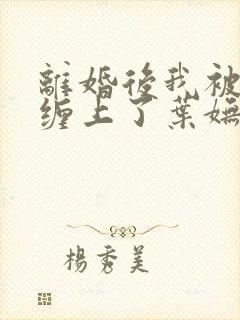 離婚後我被
缠上了葉嫵
楊秀美